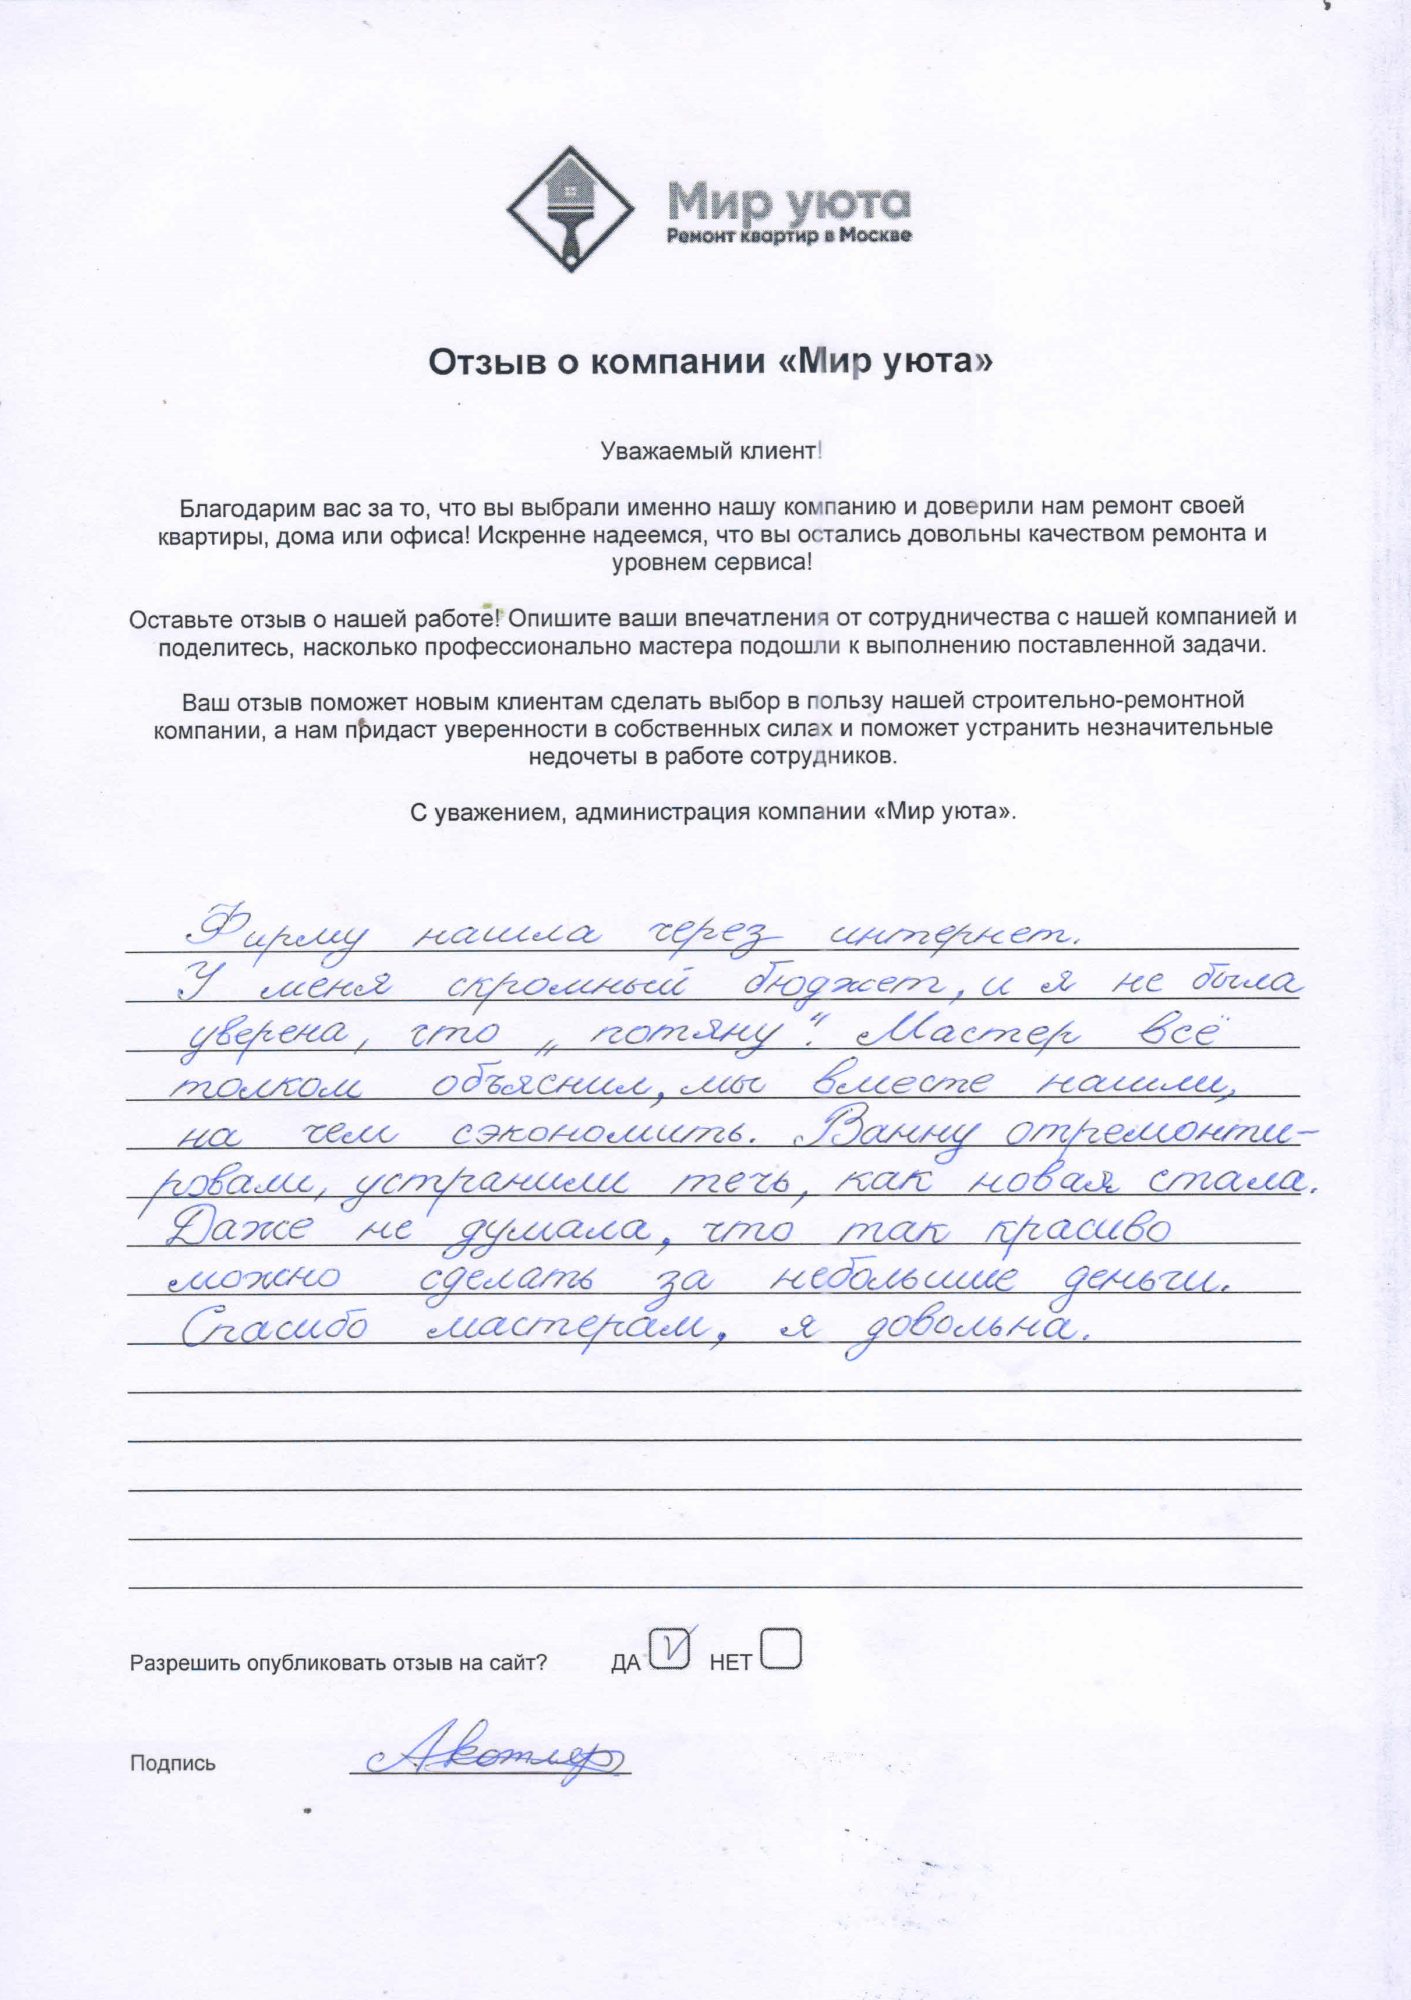 Мир уюта
Ремонт квартир в Москве
Отзыв о компании «Мир уюта»
Уважаемый клиент!
Благодарим вас за то, что вы выбрали именно нашу компанию и доверили нам ремонт своей
квартиры, дома или офиса! Искренне надеемся, что вы остались довольны качеством ремонта и
уровнем сервиса!
Оставьте отзыв о нашей работе! Опишите ваши впечатления от сотрудничества с нашей компанией и
поделитесь, насколько профессионально мастера подошли к выполнению поставленной задачи.
Ваш отзыв поможет новым клиентам сделать выбор в пользу нашей строительно-ремонтной
компании, а нам придаст уверенности в собственных силах и поможет устранить незначительные
недочеты в работе сотрудников.
С уважением, администрация компании «Мир уюта».
Фирму нашла через интернет.
У меня скромный бюджет, и я не была
уверена, что „потяну". Мастер всё
толком объяснил, мы вместе нашли,
на чем сэкономить. Ванну отремонти-
ровали, устранили течь, как новая стала.
Даже не думала, что так красиво
можно сделать за небольшие деньги.
Спасибо мастерам, я довольна.
Разрешить опубликовать отзыв на сайт? ДА V НЕТ
Подпись